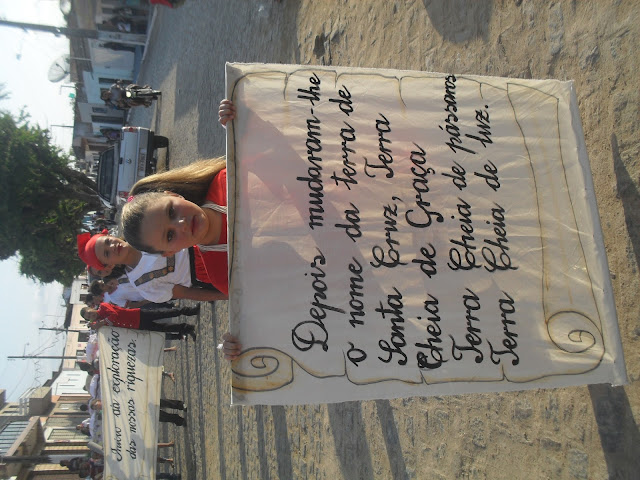 Depois mudaram-lhe
o nome da terra de
Santa Cruz, Terra
Cheia de Graça
Terra Cheia de pássaros
Terra Cheia de luz.
Início da exploração
das nossas riquezas.